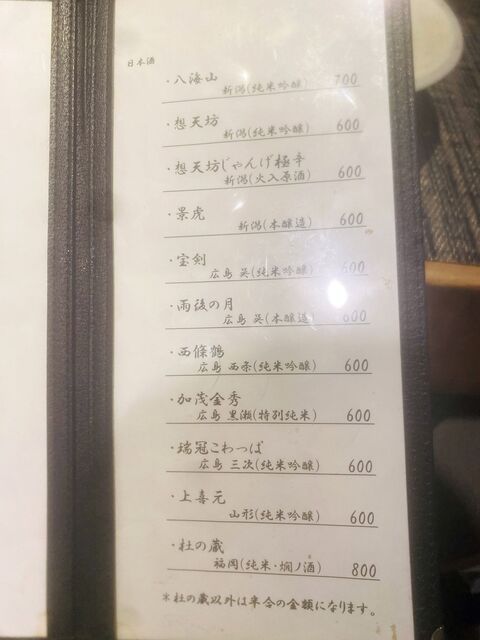 日本酒
・八海山
新潟(純米吟醸) 700
・想天坊
新潟(純米吟醸) 600
・想天坊じゃんげ極辛
新潟(火入原酒) 600
・景虎
新潟(本醸造) 600
・宝剣
広島 呉(純米吟醸) 600
・雨後の月
広島 呉(本醸造) 600
・西條鶴
広島 西条(純米吟醸) 600
・加茂金秀
広島 黒瀬(特別純米) 600
・瑞冠こわっぱ
広島 三次(純米吟醸) 600
・上喜元
山形(純米吟醸) 600
・杜の蔵
福岡(純米・燗ノ酒) 800
*杜の蔵以外は半合の金額になります。